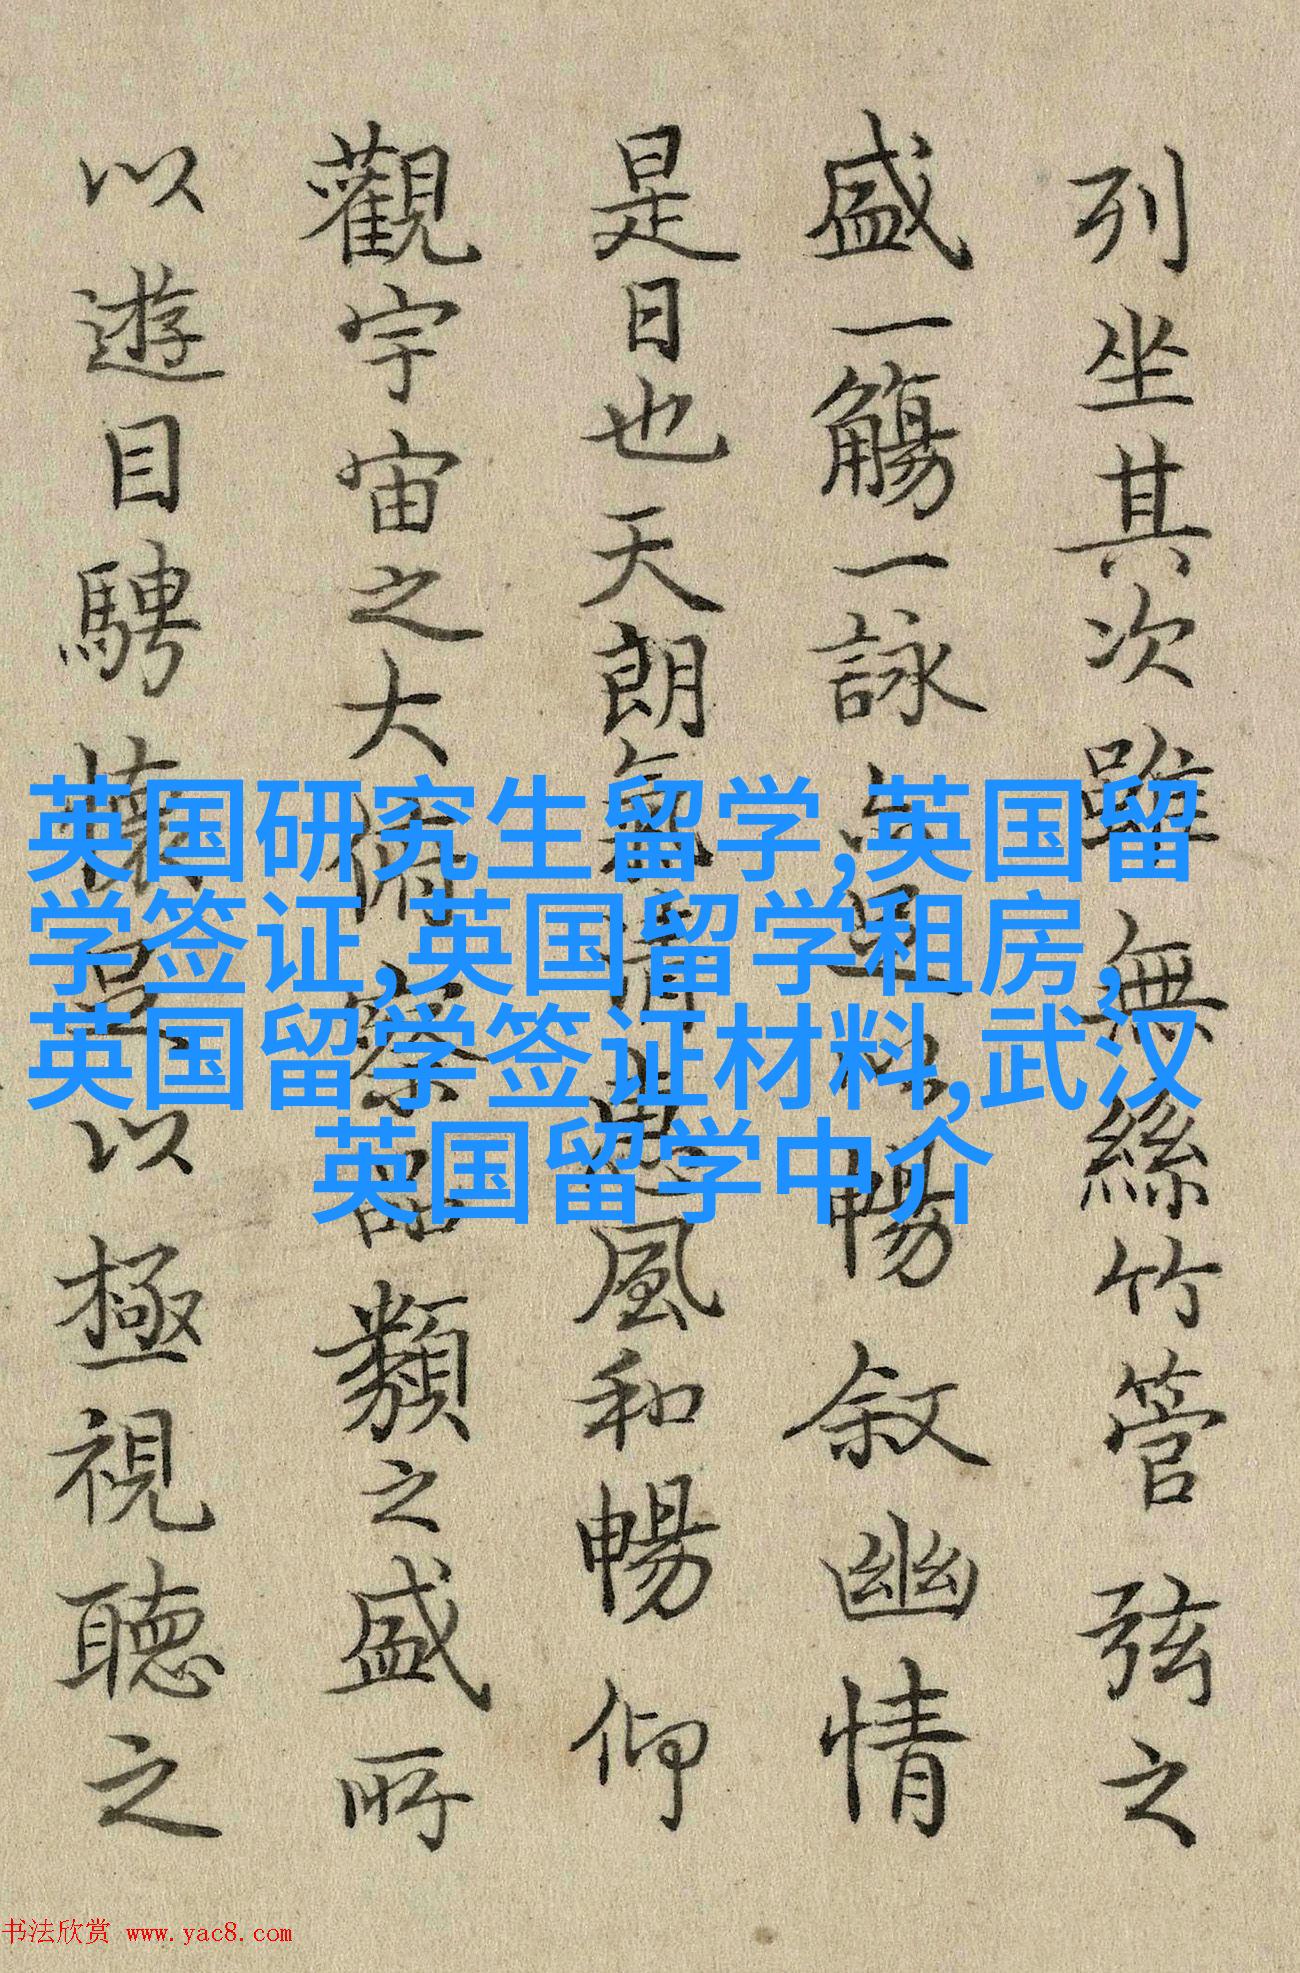 列坐其次雖無絲竹管弦之
盛一觴一詠亦足以暢敘幽情
是日也天朗氣清惠風和暢仰
觀宇宙之大俯察品類之盛所
以遊目騁懷足以極視聽之
英国研究生留学,英国留
学签证,英国留学租房,
英国留学签证材料,武汉
英国留学中介
书法欣赏 www.yac8.com